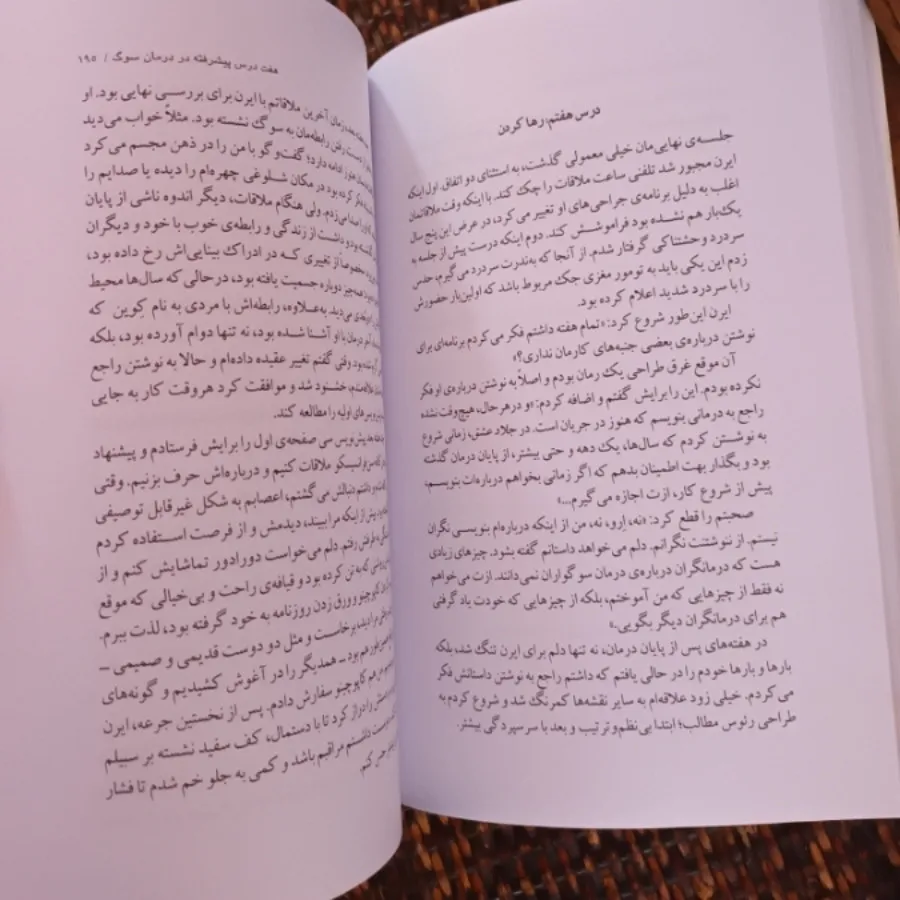 درس هفتم: رها کردن
جلسه‌ی نهایی‌مان خیلی معمولی گذشت، به استثنای دو اتفاق. اول اینکه
ایرن مجبور شد تلفنی ساعت ملاقات را چک کند. با اینکه وقت ملاقاتمان
اغلب به دلیل برنامه‌ی جراحی‌های او تغییر می‌کرد، در عرض این پنج سال
یک‌بار هم نشده بود فراموشش کند. دوم اینکه درست پیش از جلسه به
سردرد وحشتناکی گرفتار شدم. از آنجا که به‌ندرت سردرد می‌گیرم، حدس
زدم این یکی باید به تومور مغزی جک مربوط باشد که اولین‌بار حضورش
را با سردرد شدید اعلام کرده بود.
ایرن این‌طور شروع کرد: «تمام هفته داشتم فکر می‌کردم برنامه‌ای برای
نوشتن درباره‌ی بعضی جنبه‌های کارمان نداری؟»
آن موقع غرق طراحی یک رمان بودم و اصلاً به نوشتن درباره‌ی او فکر
نکرده بودم. این را برایش گفتم و اضافه کردم: «و در هر حال، هیچ‌وقت نشده
راجع به درمانی بنویسم که هنوز در جریان است. در جلاد عشق، زمانی شروع
به نوشتن کردم که سال‌ها، یک دهه و حتی بیشتر، از پایان درمان گذشته
بود و بگذار بهت اطمینان بدهم که اگر زمانی بخواهم درباره‌ات بنویسم،
پیش از شروع کار، ازت اجازه می‌گیرم...»
صحبتم را قطع کرد: «نه، اِرو، نه، من از اینکه درباره‌ام بنویسی نگران
نیستم. از ننوشتنت نگرانم. دلم می‌خواهد داستانم گفته بشود. چیزهای زیادی
هست که درمانگران درباره‌ی درمان سو گواران نمی‌دانند. ازت می‌خواهم
نه فقط از چیزهایی که من آموختم، بلکه از چیزهایی که خودت یاد گرفتی
هم برای درمانگران دیگر بگویی.»
در هفته‌های پس از پایان درمان، نه تنها دلم برای ایرن تنگ شد، بلکه
بارها و بارها خودم را در حالی یافتم که داشتم راجع به نوشتن داستانش فکر
می‌کردم. خیلی زود علاقه‌ام به سایر نقشه‌ها کمرنگ شد و شروع کردم به
طراحی رئوس مطالب؛ ابتدا بی‌نظم‌وترتیب و بعد با سرسپردگی بیشتر.
هفت درس پیشرفته در درمان سوگ / ۱۹۵
زمان آخرین ملاقاتم با ایرن برای بررسی نهایی بود. او
از دست رفتن رابطه‌مان به سوگ نشسته بود. مثلاً خواب می‌دید
هنوز ادامه دارد؛ گفت‌وگو با من را در ذهن مجسم می‌کرد
فکر کرده بود در مکان شلوغی چهره‌ام را دیده یا صدایم را
را صدا می‌زدم. ولی هنگام ملاقات، دیگر اندوه ناشی از پایان
داشت از زندگی و رابطه‌ی خوب با خود و دیگران
مخصوصاً از تغییری که در ادراک بینایی‌اش رخ داده بود،
همه‌چیز دوباره جسمیت یافته بود، درحالی که سال‌ها محیط
می‌دید. به‌علاوه، رابطه‌اش با مردی به نام کِوین که
درمان با او آشنا شده بود، نه تنها دوام آورده بود، بلکه
بود. وقتی گفتم تغییر عقیده داده‌ام و حالا به نوشتن راجع
علاقه‌مندم، خشنود شد و موافقت کرد هر وقت کار به جایی
اولیه را مطالعه کند.
پیش‌نویس سی صفحه‌ی اول را برایش فرستادم و پیشنهاد
ملاقات کنیم و درباره‌اش حرف بزنیم. وقتی
داشتم دنبالش می‌گشتم، اعصابم به شکل غیرقابل توصیفی
پیش از اینکه مرا ببیند، دیدمش و از فرصت استفاده کردم
رفتم. دلم می‌خواست دورادور تماشایش کنم و از
که به تن کرده بود و قیافه‌ی راحت و بی‌خیالی که موقع
کاپوچینو و ورق زدن روزنامه به خود گرفته بود، لذت ببرم.
مرا دید، برخاست و مثل دو دوست قدیمی و صمیمی ـ
هم بود ـ همدیگر را در آغوش کشیدیم و گونه‌های
هم کاپوچینو سفارش دادم. پس از نخستین جرعه، ایرن
را دراز کرد تا با دستمال، کف سفید نشسته بر سبیلم
داشتم مراقبم باشد و کمی به جلو خم شدم تا فشار
حس کنم.